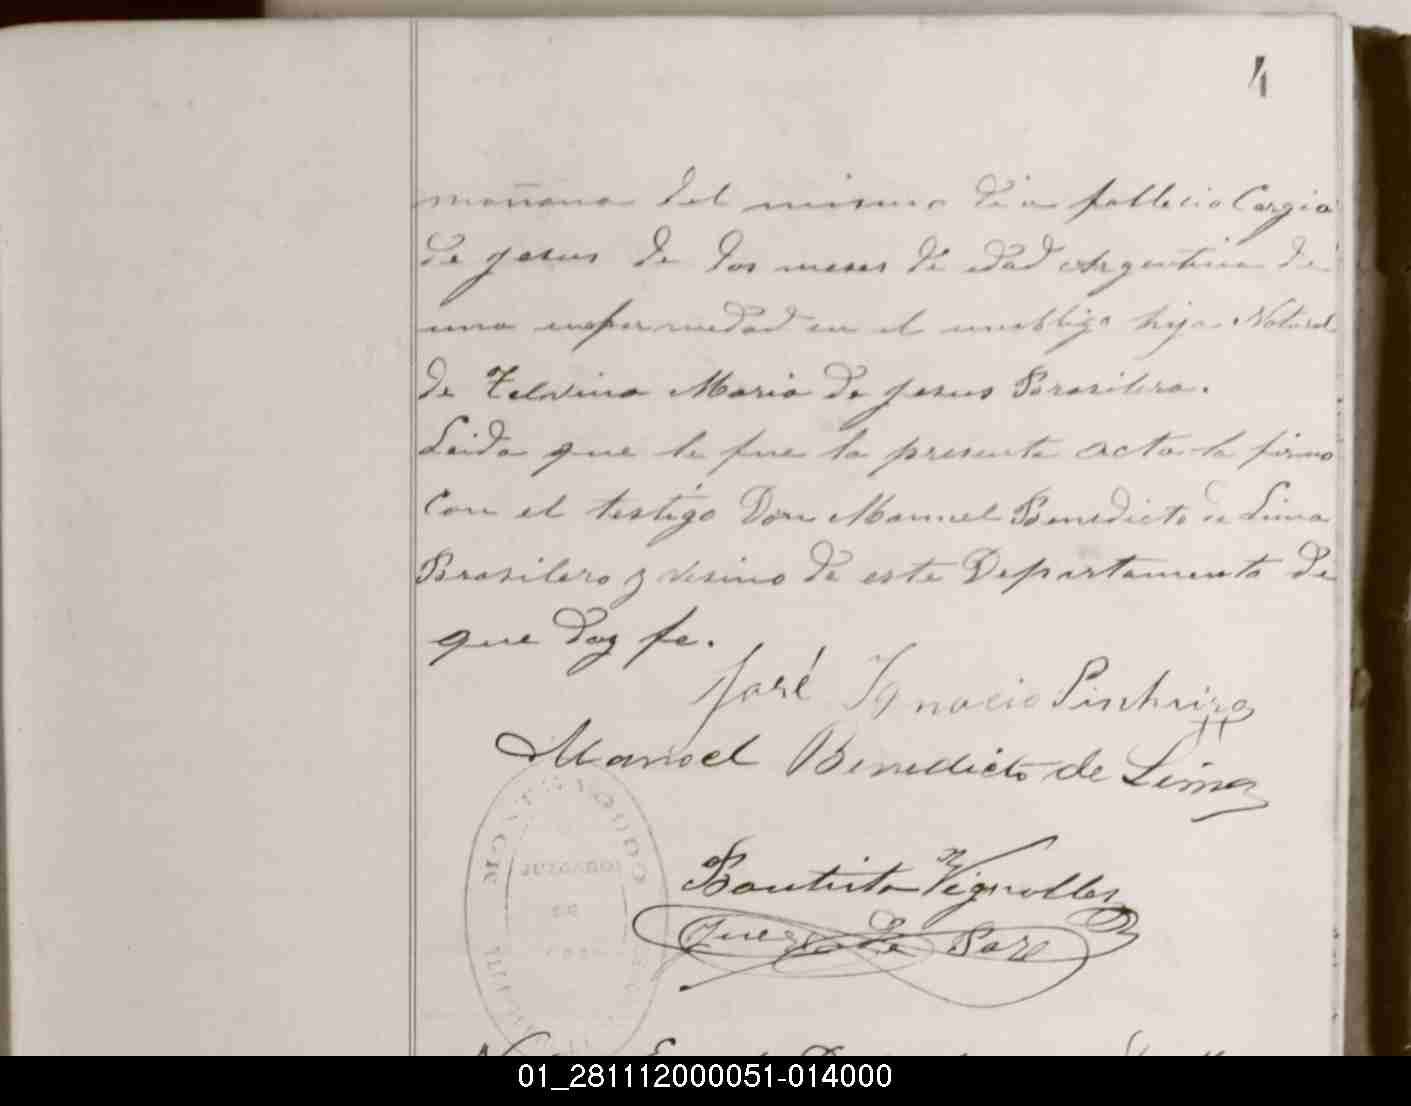 4
mañana del mismo dia fallecio Corgia
de Jesus de dos meses de edad Argentina de
una enfermedad en el umbligo hija Natural
de Telvina Maria de Jesus Brasilera.
Leida que le fue la presente acta la firmo
con el testigo Don Manuel Benedicto de Lima
Brasilero y vesino de este Departamento de
que doy fe.
José Ignacio Pinheiro
Manoel Benedicto de Lima
Bautista Vignolles
Juez de Paz
01_281112000051-014000